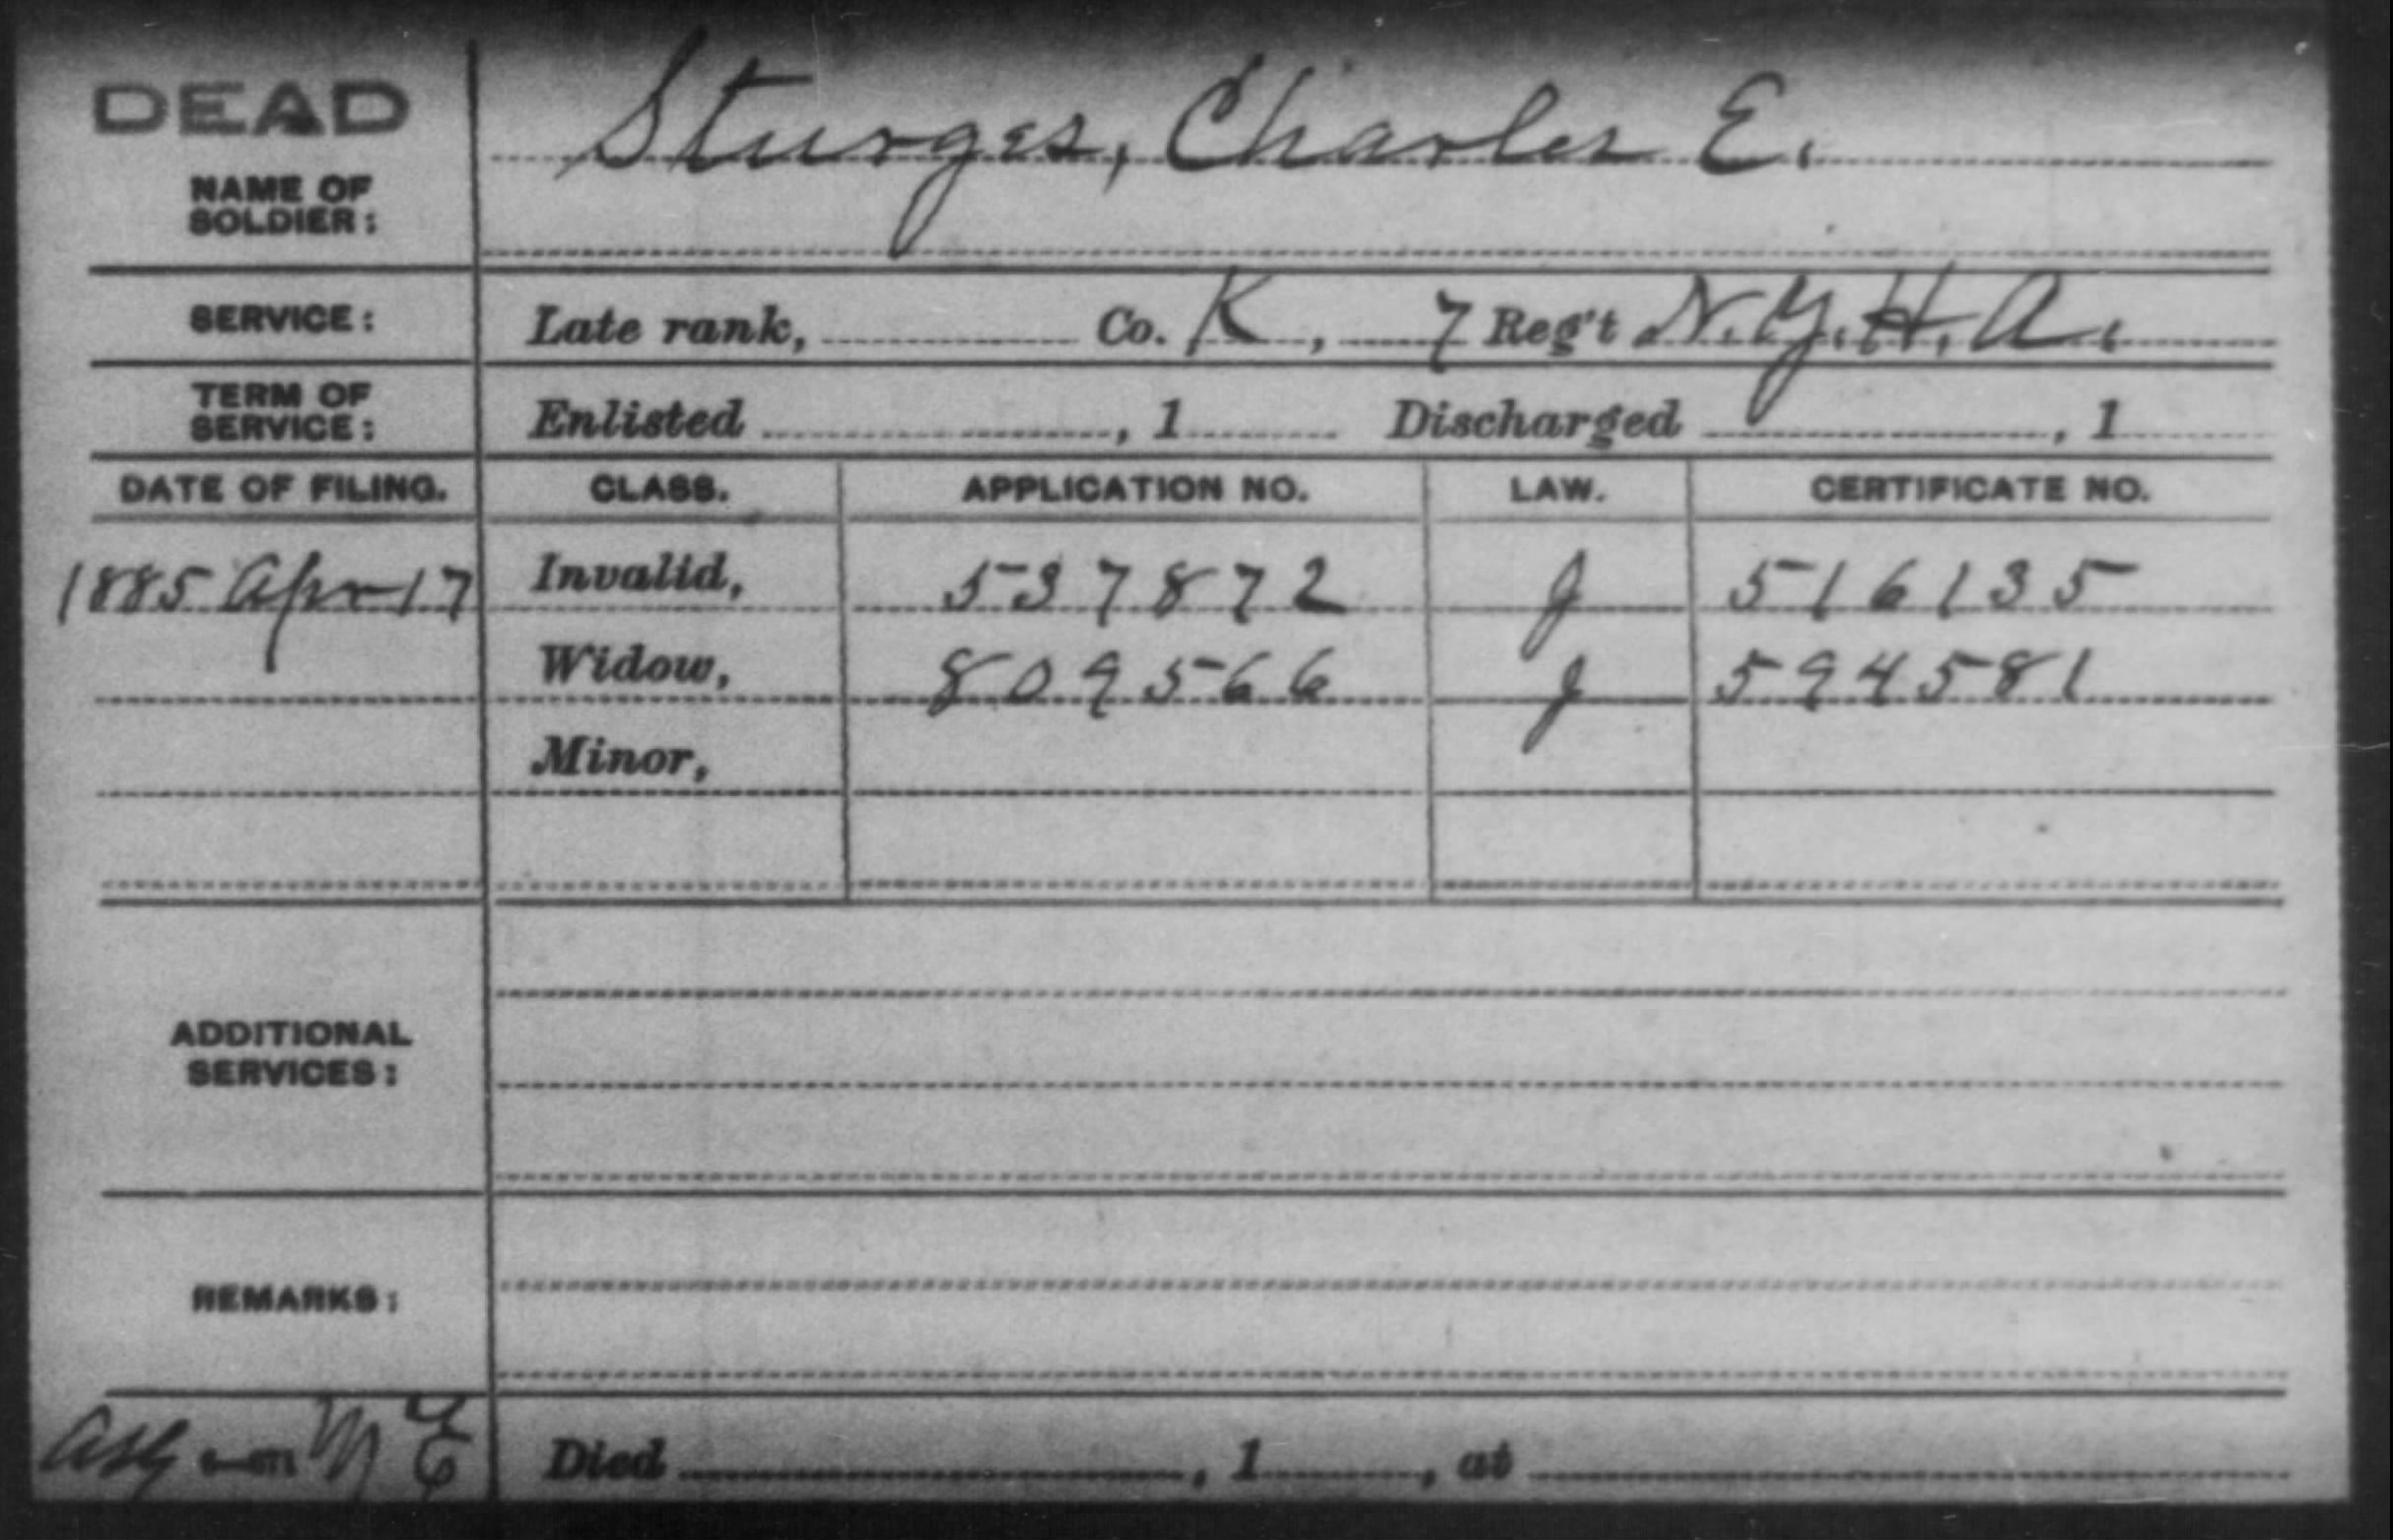 DEAD
Sturges, Charles E.
NAME OF
SOLDIER:
SERVICE: Late rank, Co. K, 7 Reg't N.Y.H.A.
TERM OF
SERVICE: Enlisted , 1 Discharged , 1
DATE OF FILING. CLASS. APPLICATION NO. LAW. CERTIFICATE NO.
1885 Apr 17 Invalid, 537872 J 516135
Widow, 809566 J 594581
Minor,
ADDITIONAL
SERVICES:
REMARKS:
Died , 1 , at